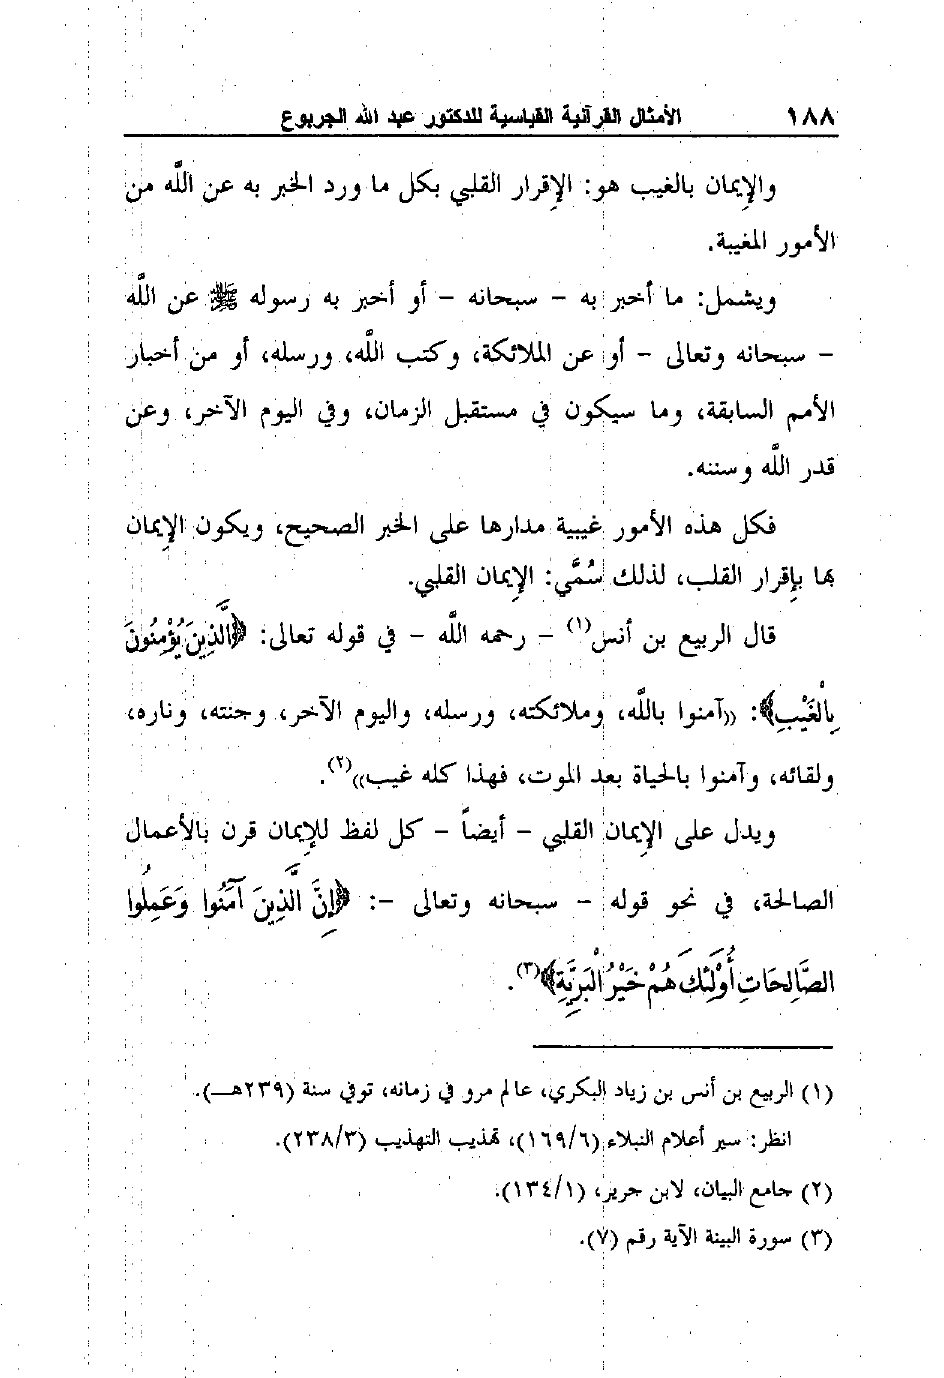 ١٨٨ الأمثال القرآنية القياسية للدكتور عبد الله الجربوع
والإيمان بالغيب هو: الإقرار القلبي بكل ما ورد الخبر به عن اللَّه من
الأمور المغيبة.
ويشمل: ما أخبر به – سبحانه – أو أخبر به رسوله ﷺ عن اللَّه
– سبحانه وتعالى – أو عن الملائكة، وكتب اللَّه، ورسله، أو من أخبار
الأمم السابقة، وما سيكون في مستقبل الزمان، وفي اليوم الآخر، وعن
قدر اللَّه وسننه.
فكل هذه الأمور غيبية مدارها على الخبر الصحيح، ويكون الإيمان
بها بإقرار القلب، لذلك سُمَّي: الإيمان القلبي.
قال الربيع بن أنس(١) – رحمه اللَّه – في قوله تعالى: ﴿الَّذِينَ يُؤْمِنُونَ
بِالْغَيْبِ﴾: ((آمنوا باللَّه، وملائكته، ورسله، واليوم الآخر، وجنته، وناره،
ولقائه، وآمنوا بالحياة بعد الموت، فهذا كله غيب))(٢).
ويدل على الإيمان القلبي – أيضاً – كل لفظ للإيمان قرن بالأعمال
الصالحة، في نحو قوله – سبحانه وتعالى –: ﴿إِنَّ الَّذِينَ آمَنُوا وَعَمِلُوا
الصَّالِحَاتِ أُوْلَئِكَ هُمْ خَيْرُ الْبَرِيَّةِ﴾(٣).
(١) الربيع بن أنس بن زياد البكري، عالم مرو في زمانه، توفي سنة (٢٣٩هـ).
انظر: سير أعلام النبلاء (١٦٩/٦)، تهذيب التهذيب (٢٣٨/٣).
(٢) جامع البيان، لابن جرير، (١٣٤/١).
(٣) سورة البينة الآية رقم (٧).